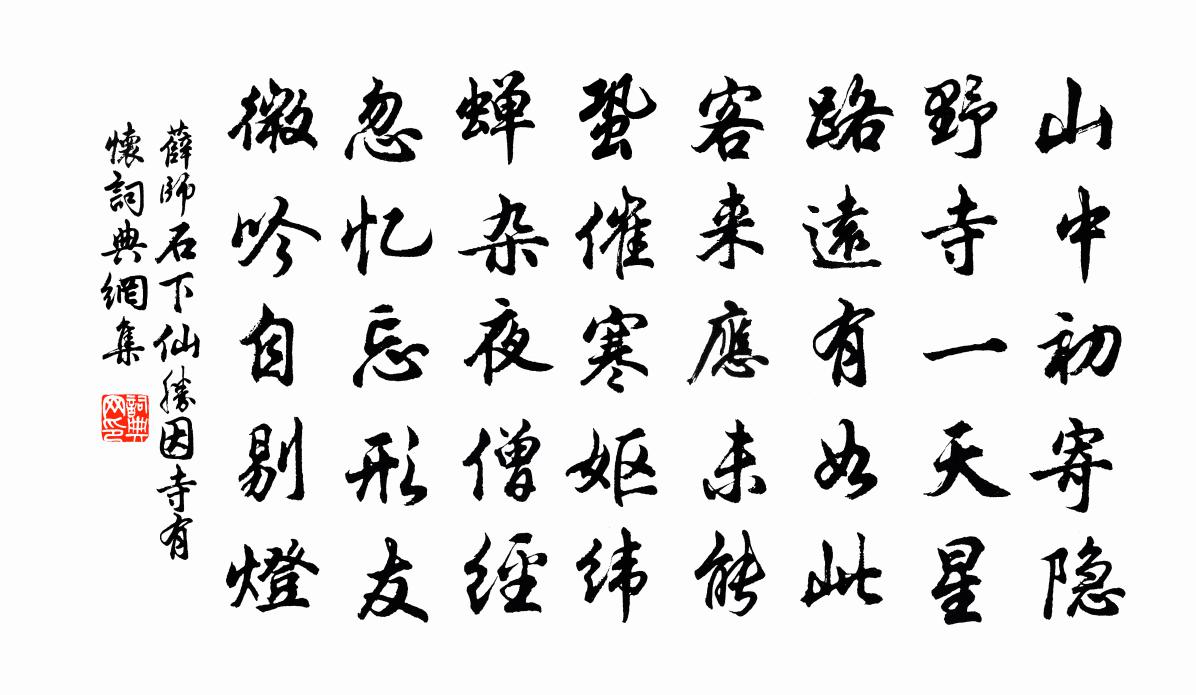 山中初寄隐
野寺一天星
路遠有如此
客来應未能
蛩催寒妪纬
蝉杂夜僧經
忽忆忘形友
微吟自剔燈
薛師石下仙勝因寺有
懷詞典網集
詞典
网印